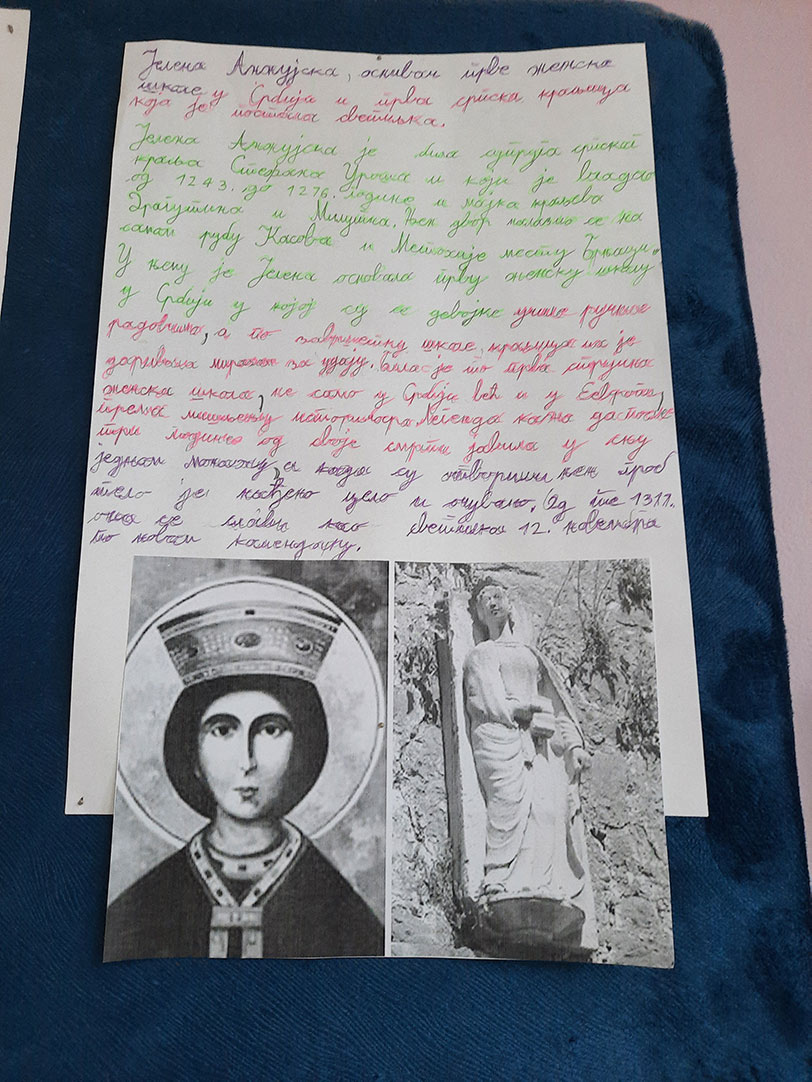 Јелена Анжујска, оснивач прве женске
школе у Србији и прва српска краљица
која је постала светица.
Јелена Анжујска је била супруга српског
краља Стефана Уроша и који је владао
од 1243. до 1276. године и мајка краљева
Драгутина и Милутина. Њен двор налазио се на
самом рубу Косова и Метохије месту Брњаци.
У њему је Јелена основала прву женску школу
у Србији у којој су се девојке училе ручног
радовима, а по завршетку школе краљица их је
даривала миразом за удају. Била је то прва стручна
женска школа, не само у Србији већ и у Европи,
према мишљењу историчара. Легенда каже да после
три године од своје смрти јавила у сну
једном монаху, а када су отворили њен гроб
тело је нађено цело и очувано. Од те 1317.
она се слави као светица 12. новембра
по новом календару.